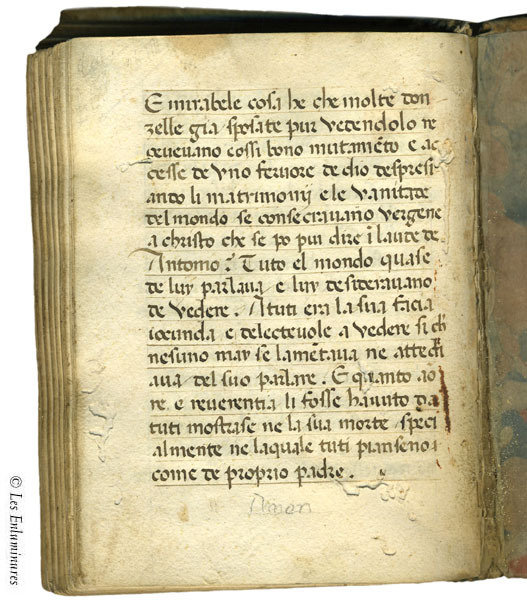 E mirabele cosa he che molte don
zelle gia sposate pur vedendolo re
cevevano cossi bono mutamēto e ac
cesse de vno fervore de dio despresi
ando li matrimonij e le vanitade
del mondo se consecravano vergene
a christo che se po pur dire ī laude de
Antonio. Tuto el mondo quase
de luy parlava e luy desideravano
de vedere. A tuti era la sua facia
iocunda e delectevole a vedere si ch̄
nesuno may se lamētava ne attedi
ava del suo parlare. E quanto ao
re. e reverentia li fosse havuto da
tuti mostrase ne la sua morte speci
almente ne laquale tuti pianseno i
come de proprio padre.
Amen
© Les Enluminures